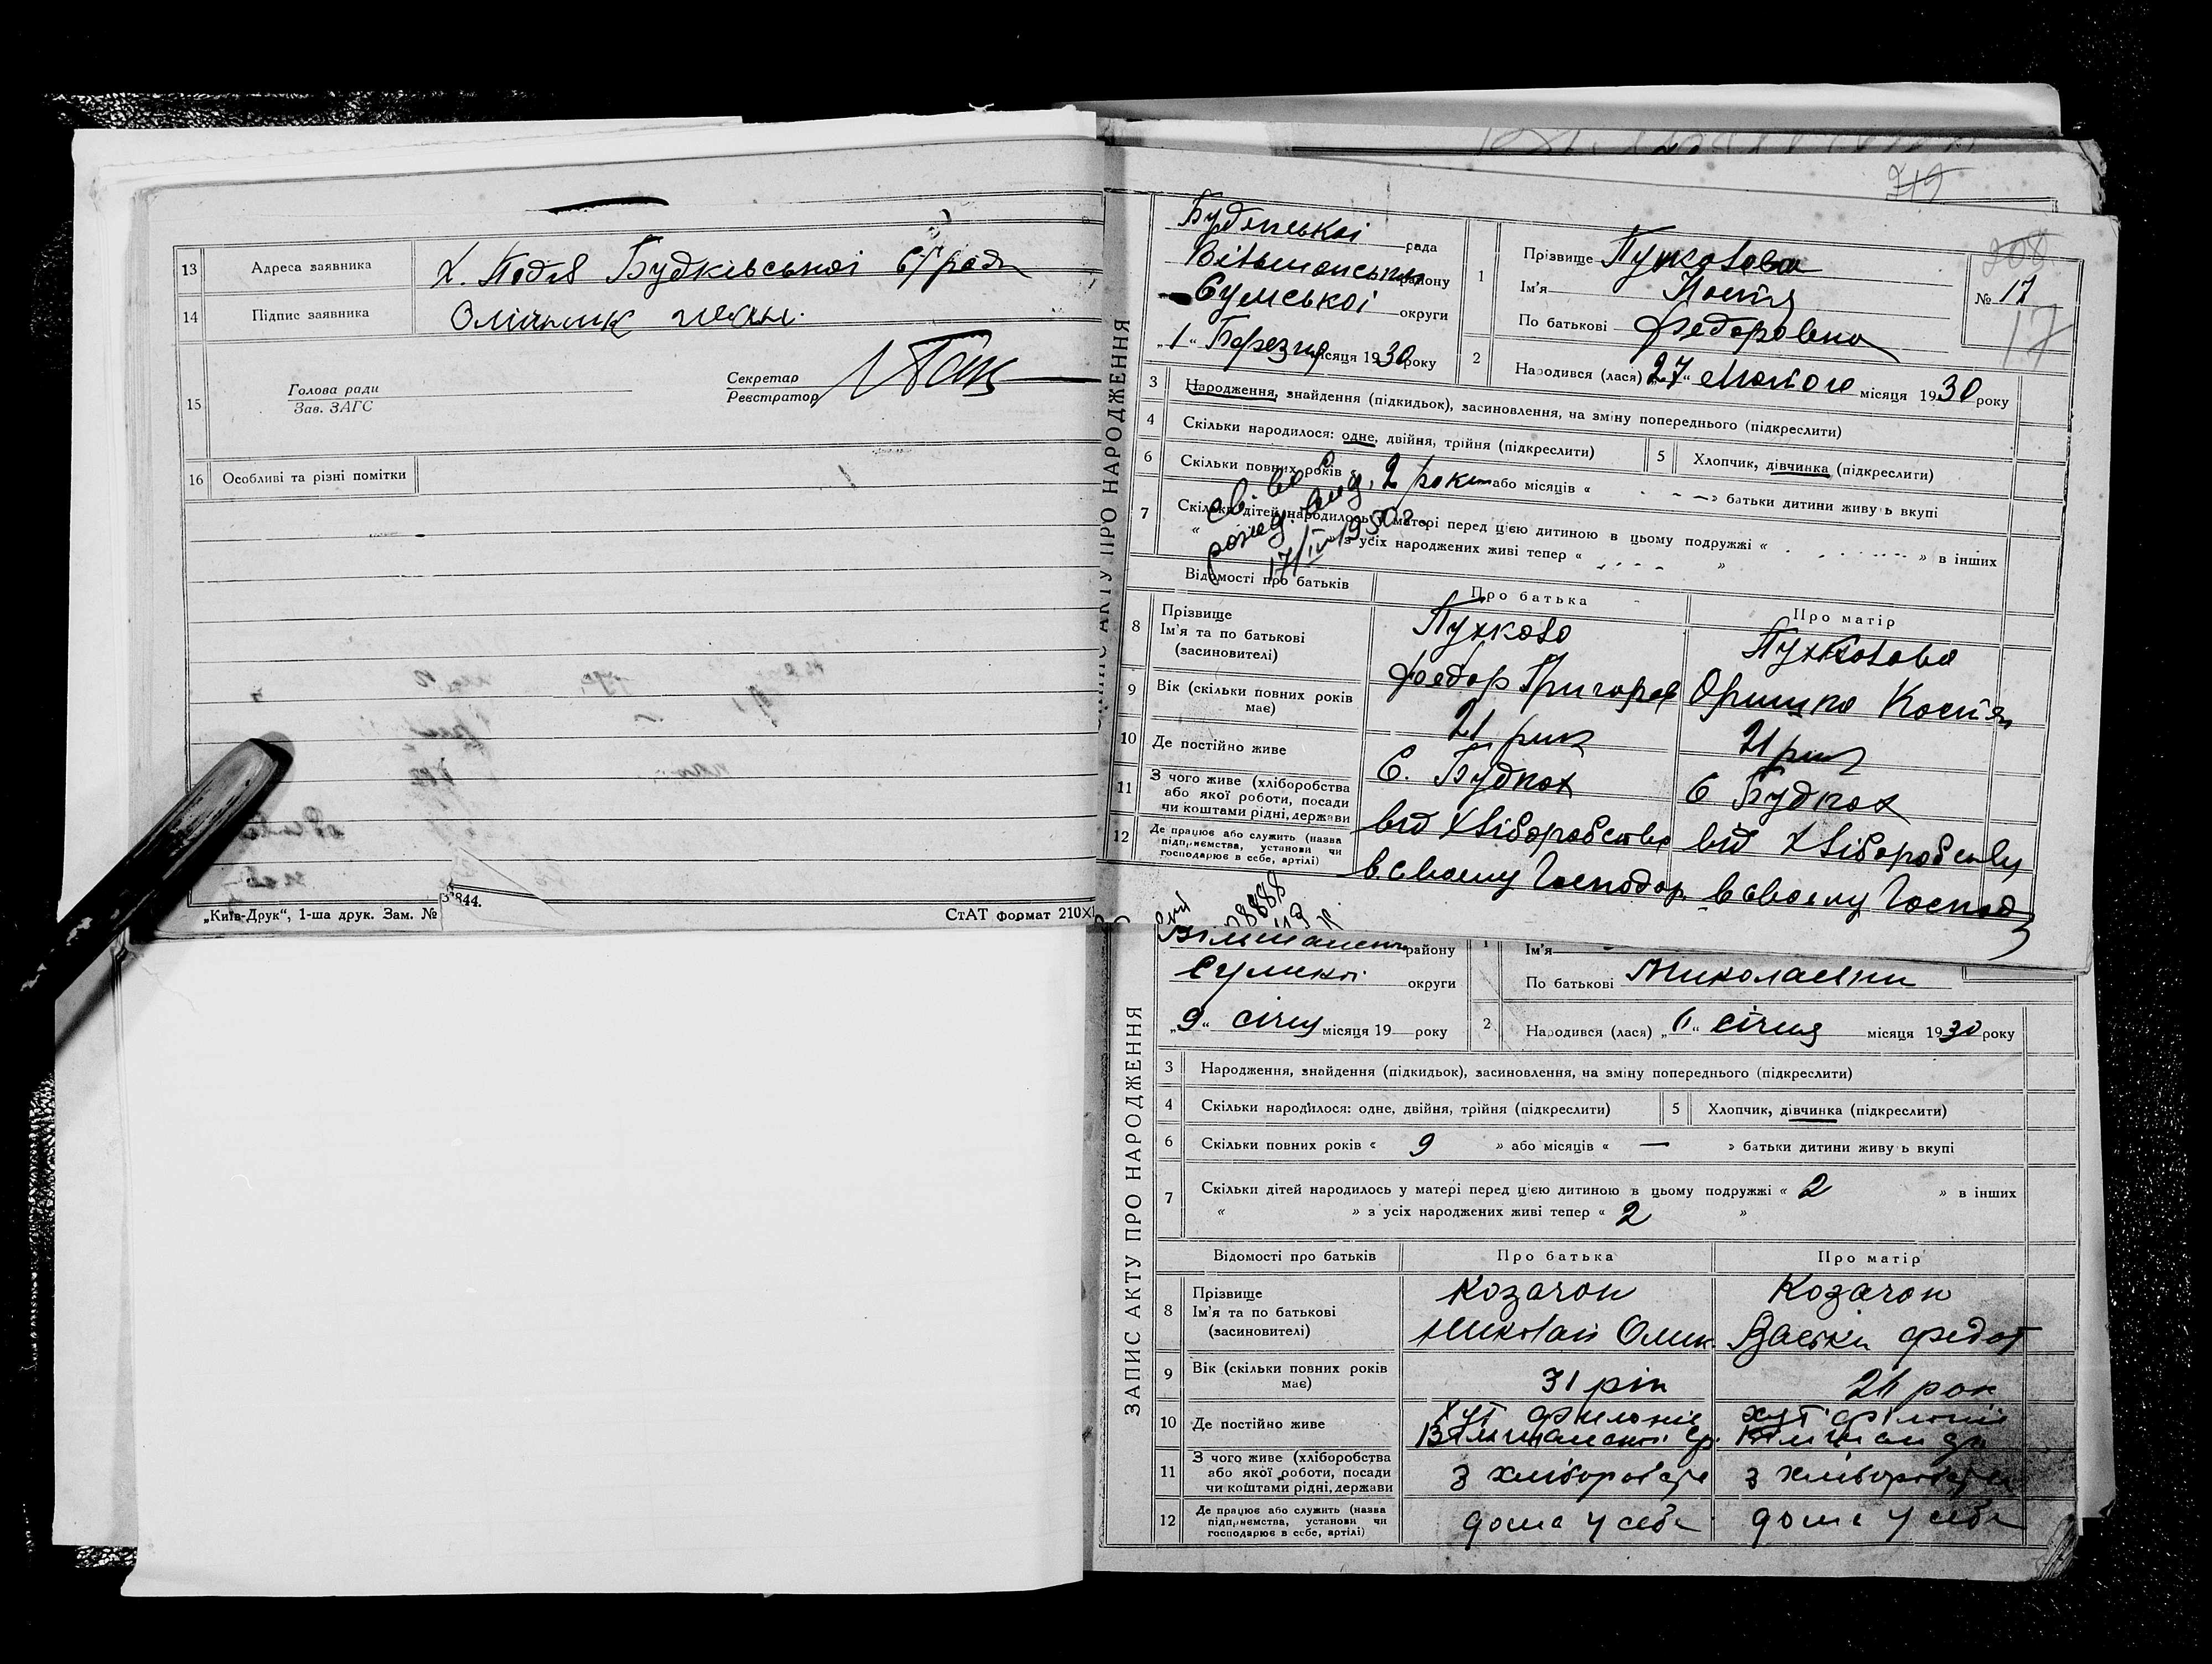 13 Адреса заявника Х. Поділ Будківської с/ради
14 Підпис заявника Олійник
15 Голова ради
Зав. ЗАГС
Секретар
Реєстратор
16 Особливі та різні помітки
„Київ-Друк“, 1-ша друк. Зам. № 3844.
СтАТ формат 210×
719
308
ЗАПИС АКТУ ПРО НАРОДЖЕННЯ
рада
району
Сумської округи
„1“ Березня місяця 1930 року
1 Прізвище
Ім'я Настя
По батькові Федоровна
№ 17
17
2 Народився (лася) „27“ Лютого місяця 1930 року
3 Народження, знайдення (підкидьок), засиновлення, на зміну попереднього (підкреслити)
4 Скільки народилося: одне, двійня, трійня (підкреслити)
5 Хлопчик, дівчинка (підкреслити)
6 Скільки повних років « 2 роки або місяців « — » батьки дитини живуь вкупі
7 Скільки дітей народилось у матері перед цією дитиною в цьому подружжі « » в інших
« з усіх народжених живі тепер « »
17/IV 1950 г.
Відомості про батьків Про батька Про матір
8 Прізвище
Ім'я та по батькові
(засиновителі)
Федор Григоров
Оришка Костян
9 Вік (скільки повних років має) 21 рик 21 рик
10 Де постійно живе С. Будках С Будках
11 З чого живе (хліборобства або якої роботи, посади чи коштами рідні, держави від хліборобства від хліборобству
12 Де працює або служить (назва підприємства, установи чи господарює в себе, артілі) в своему Господар. в своему Господ
району
Сумської округи
„9“ січня місяця 19 року
1 Ім'я
По батькові Миколаевни
2 Народився (лася) „6“ січня місяця 1930 року
ЗАПИС АКТУ ПРО НАРОДЖЕННЯ
3 Народження, знайдення (підкидьок), засиновлення, на зміну попереднього (підкреслити)
4 Скільки народилося: одне, двійня, трійня (підкреслити)
5 Хлопчик, дівчинка (підкреслити)
6 Скільки повних років « 9 » або місяців « — » батьки дитини живуь вкупі
7 Скільки дітей народилось у матері перед цією дитиною в цьому подружжі « 2 » в інших
« » з усіх народжених живі тепер « 2 »
Відомості про батьків Про батька Про матір
8 Прізвище
Ім'я та по батькові
(засиновителі)
Козачок Козачок
Николай Омик. Васька Федот
9 Вік (скільки повних років має) 31 рік 26 рок
10 Де постійно живе хут хут
11 З чого живе (хліборобства або якої роботи, посади чи коштами рідні, держави з хліборобства з хліборобства
12 Де працює або служить (назва підприємства, установи чи господарює в себе, артілі) дома у себе дома у себе